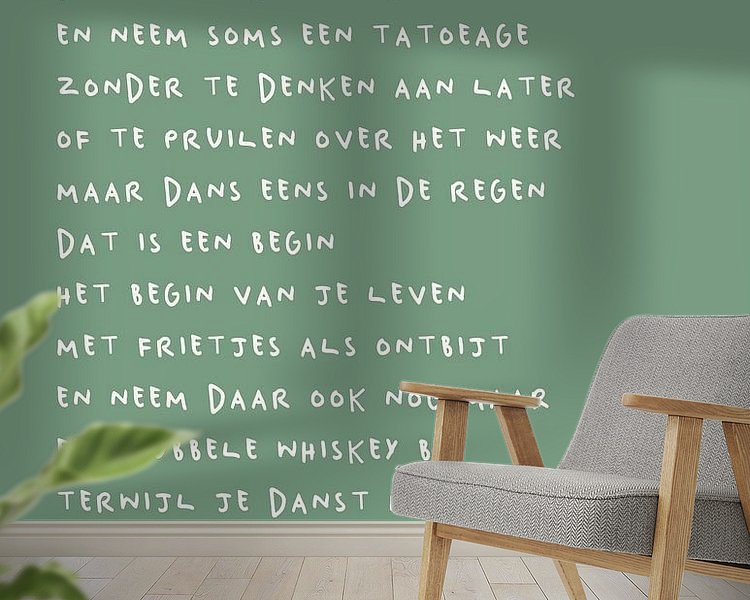 EN NEEM SOMS EEN TATOEAGE
ZONDER TE DENKEN AAN LATER
OF TE PRUILEN OVER HET WEER
MAAR DANS EENS IN DE REGEN
DAT IS EEN BEGIN
HET BEGIN VAN JE LEVEN
MET FRIETJES ALS ONTBIJT
EN NEEM DAAR OOK
WHISKEY
TERWIJL JE DANST